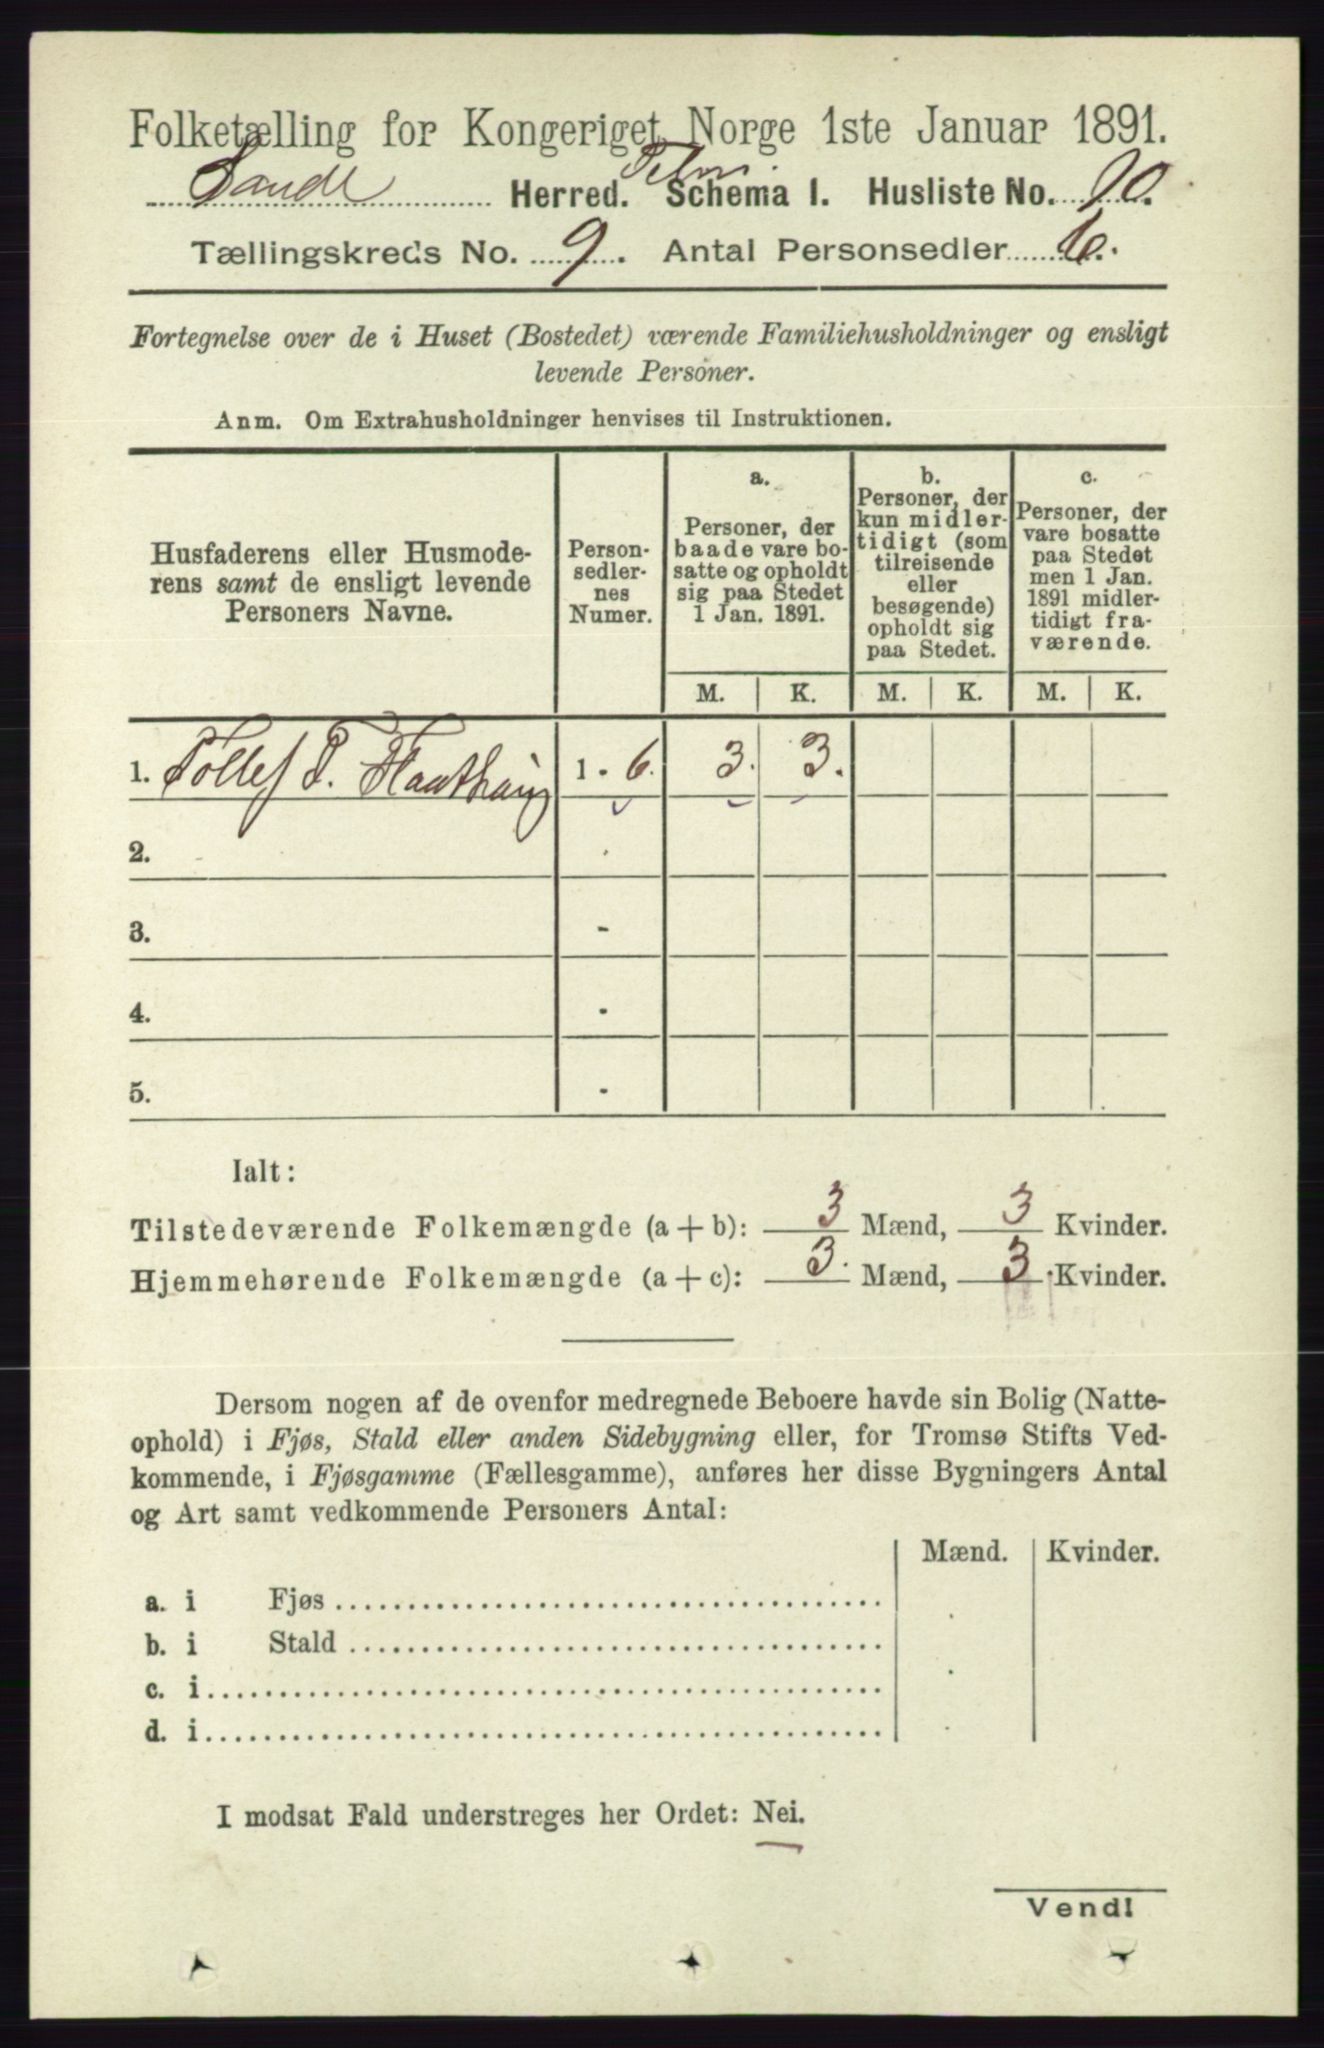 Folketælling for Kongeriget Norge 1ste Januar 1891.
Herred. Schema I. Husliste No. 90.
Tællingskreds No. 9. Antal Personsedler 6.
Fortegnelse over de i Huset (Bostedet) værende Familiehusholdninger og ensligt
levende Personer.
Anm. Om Extrahusholdninger henvises til Instruktionen.
Husfaderens eller Husmode-
rens samt de ensligt levende
Personers Navne.
Person-
sedler-
nes
Numer.
a.
Personer, der
baade vare bo-
satte og opholdt
sig paa Stedet
1 Jan. 1891.
b.
Personer, der
kun midler-
tidigt (som
tilreisende
eller
besøgende)
opholdt sig
paa Stedet.
c.
Personer, der
vare bosatte
paa Stedet
men 1 Jan.
1891 midler-
tidigt fra-
værende.
M. K. M. K. M. K.
1. Tollef P. 1 - 6. 3. 3.
2.
3. -
4. -
5. -
Ialt:
Tilstedeværende Folkemængde (a + b): 3 Mænd, 3 Kvinder.
Hjemmehørende Folkemængde (a + c): 3. Mænd, 3 Kvinder.
Dersom nogen af de ovenfor medregnede Beboere havde sin Bolig (Natte-
ophold) i Fjøs, Stald eller anden Sidebygning eller, for Tromsø Stifts Ved-
kommende, i Fjøsgamme (Fællesgamme), anføres her disse Bygningers Antal
og Art samt vedkommende Personers Antal:
Mænd. Kvinder.
a. i Fjøs
b. i Stald
c. i
d. i
I modsat Fald understreges her Ordet: Nei.
Vend!